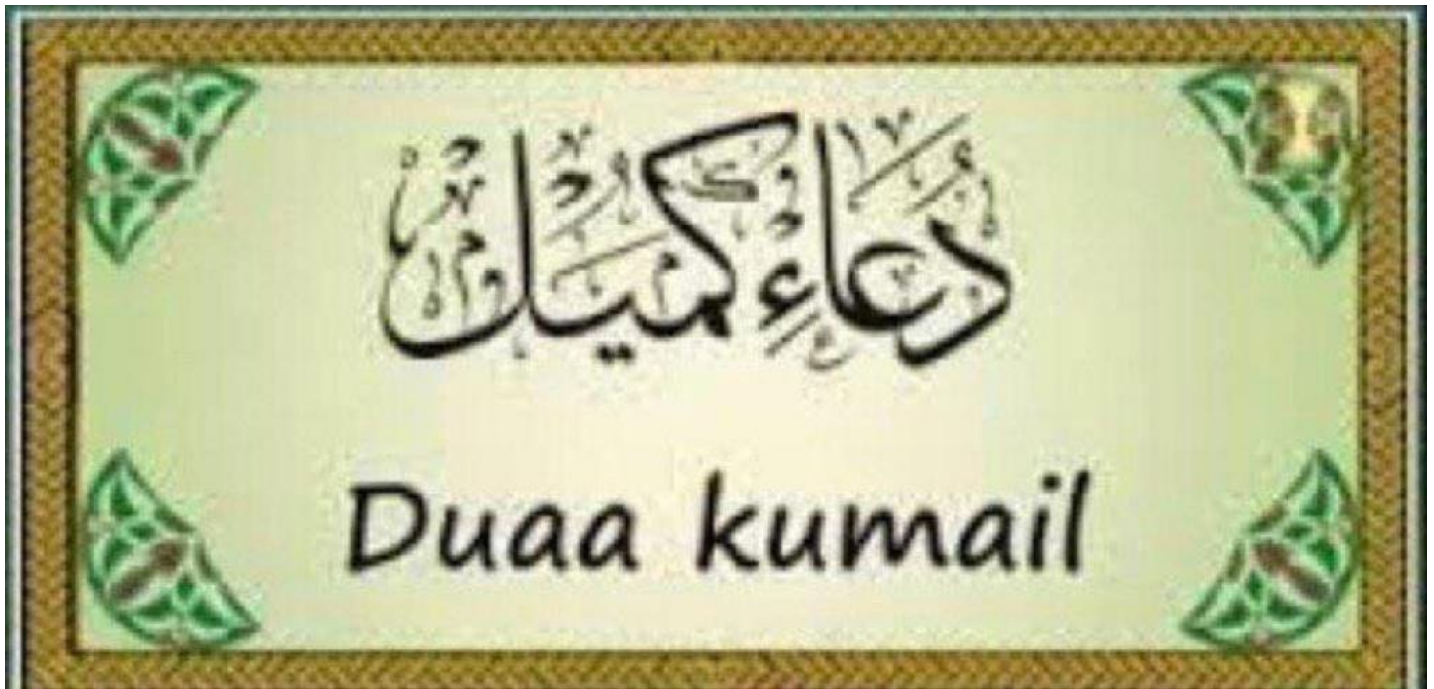 دُعَاءِ كُمَيْل
Duaa kumail